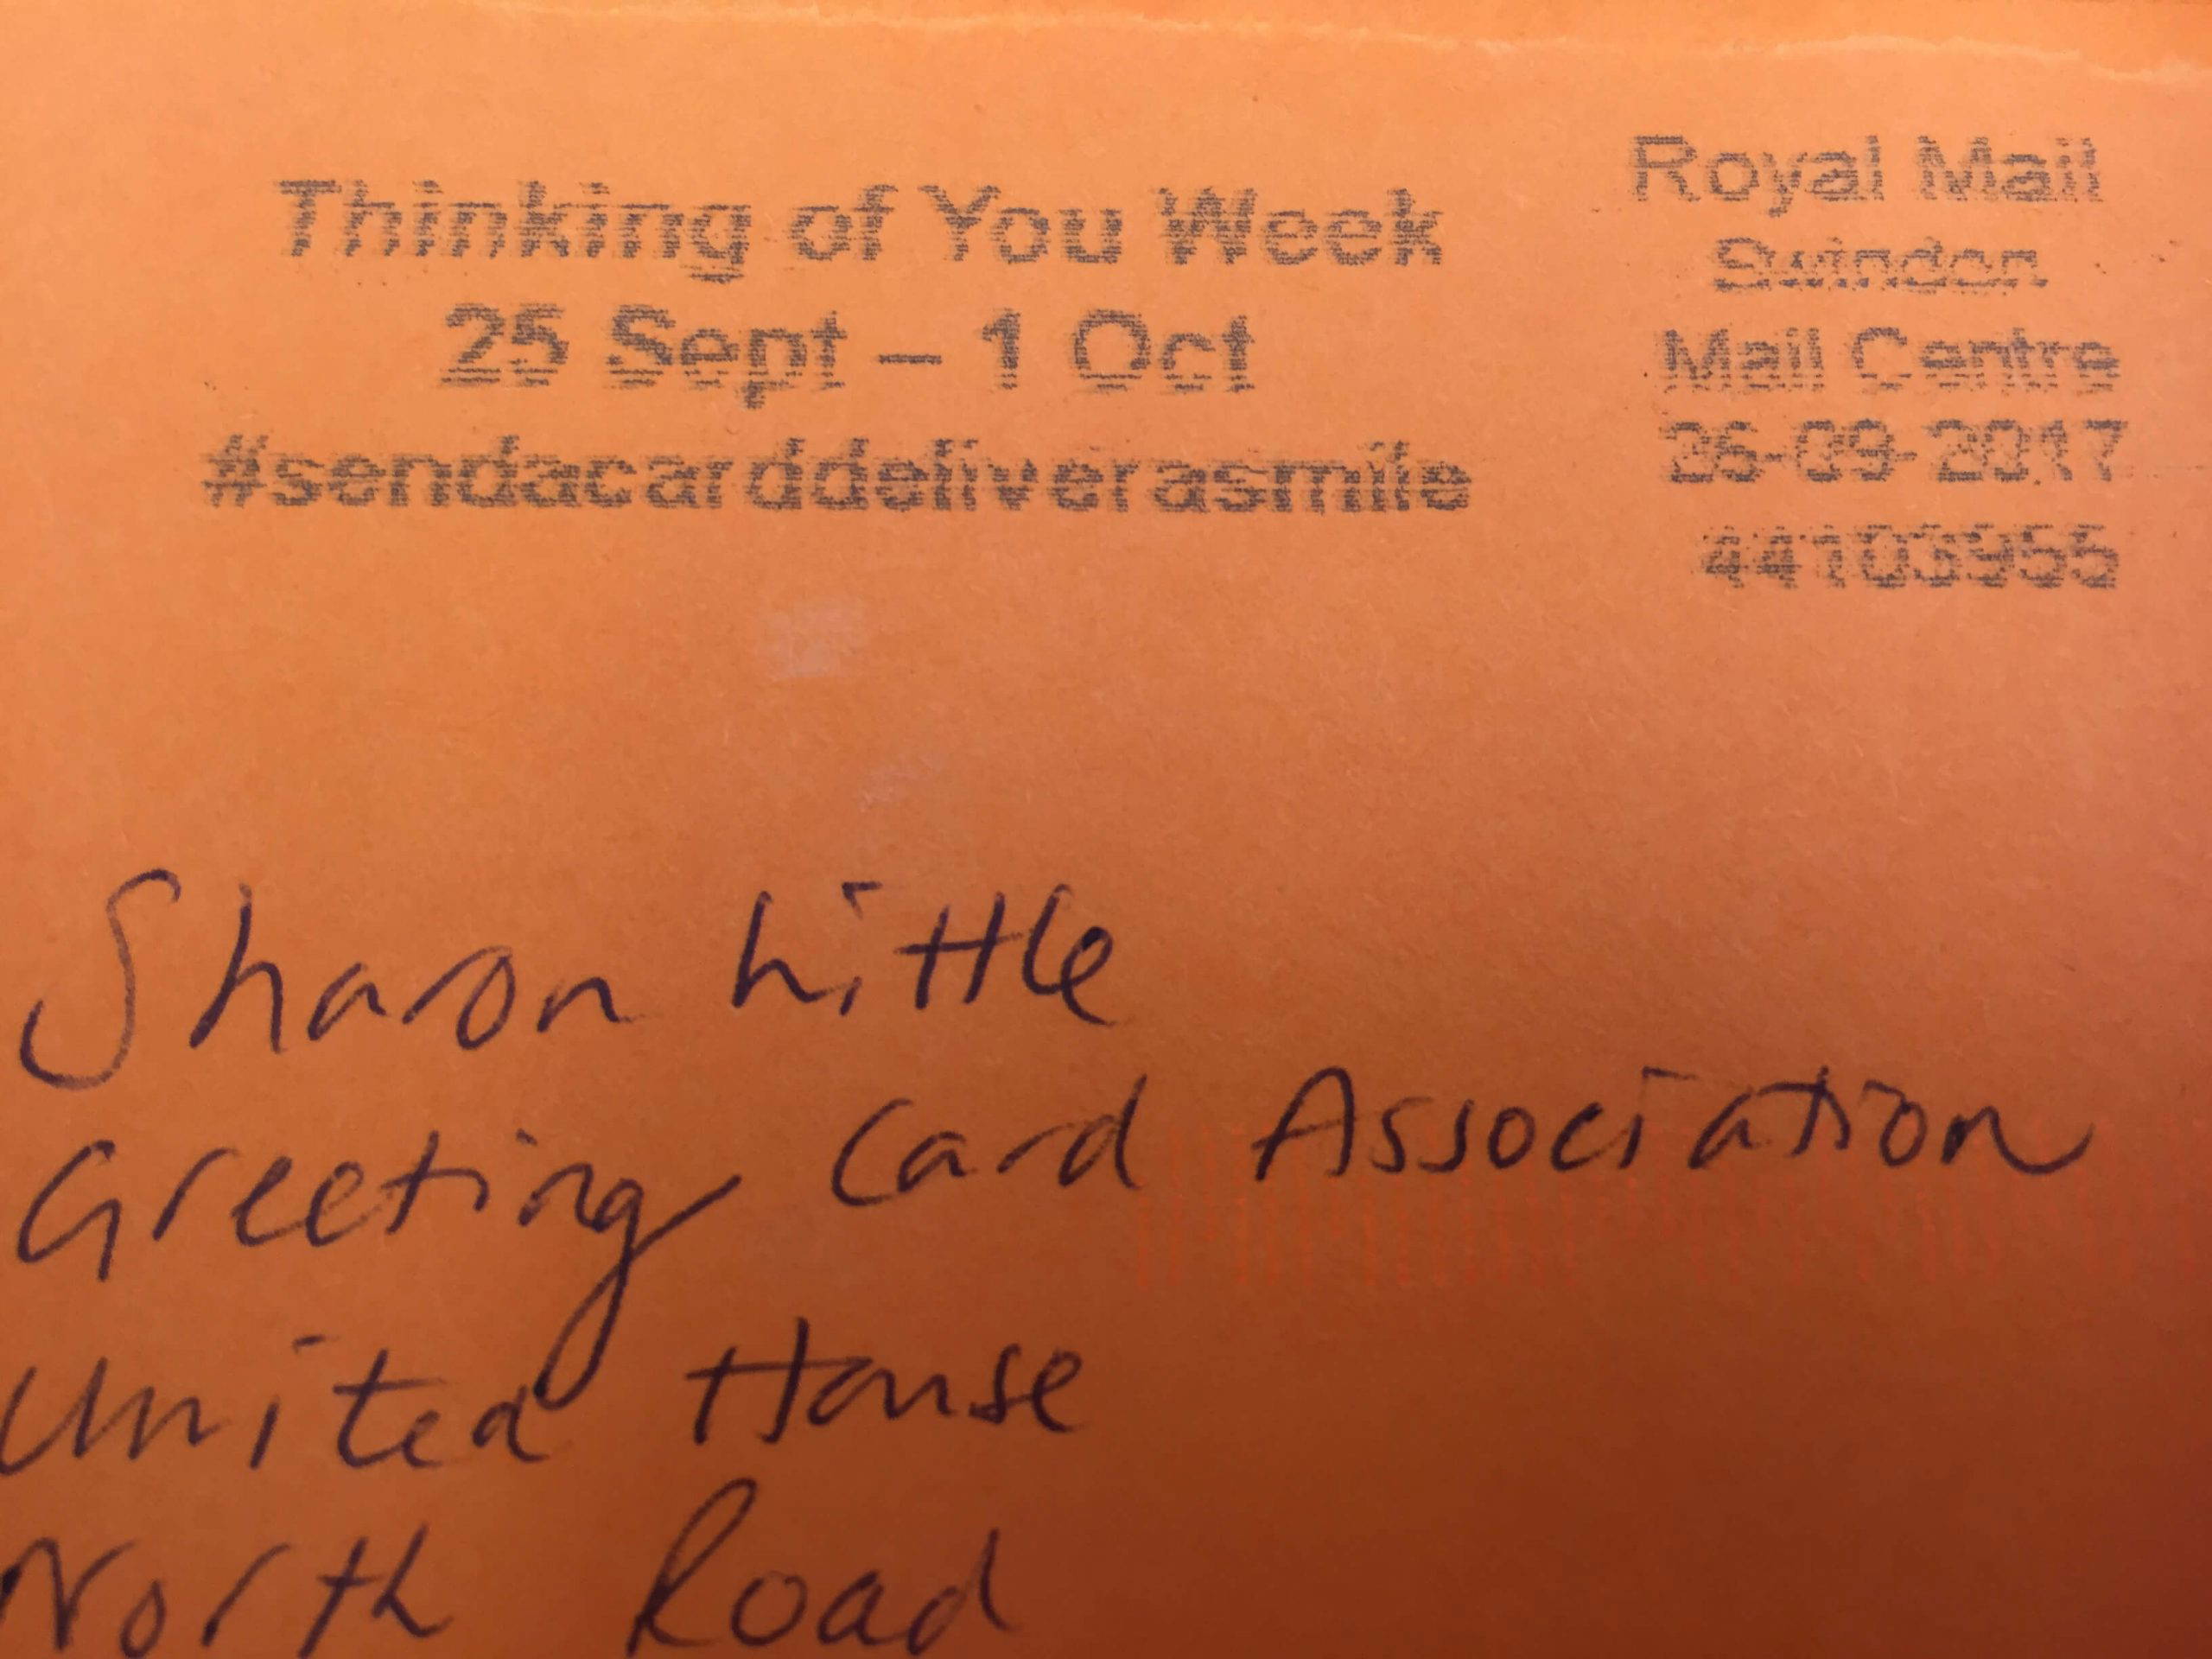 Thinking of You Week
25 Sept – 1 Oct
#sendacarddeliverasmile
Royal Mail
Swindon
Mail Centre
26-09-2017
44103955
Sharon Little
Greeting Card Association
United House
North Road